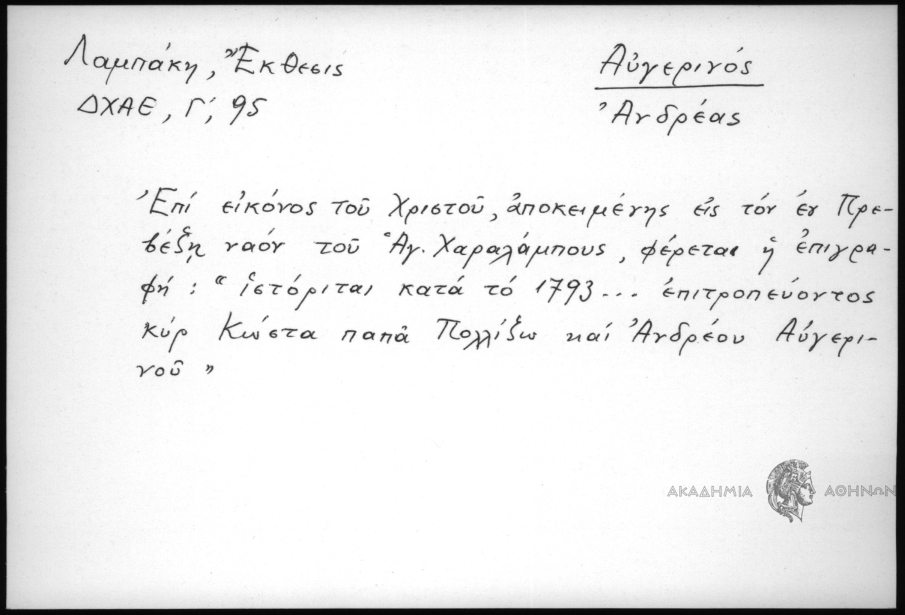 Λαμπάκη, Ἔκθεσις
ΔΧΑΕ, Γ', 95
Αὐγερινός
Ἀνδρέας
Ἐπί εἰκόνος τοῦ Χριστοῦ, ἀποκειμένης εἰς τόν ἐν Πρε-
βέζῃ ναόν τοῦ Ἁγ. Χαραλάμπους, φέρεται ἡ ἐπιγρα-
φή : "ἱστόριται κατά τό 1793... ἐπιτροπεύοντος
κύρ Κώστα παπᾶ Πολλίζω καί Ἀνδρέου Αὐγερι-
νοῦ"
ΑΚΑΔΗΜΙΑ ΑΘΗΝΩΝ